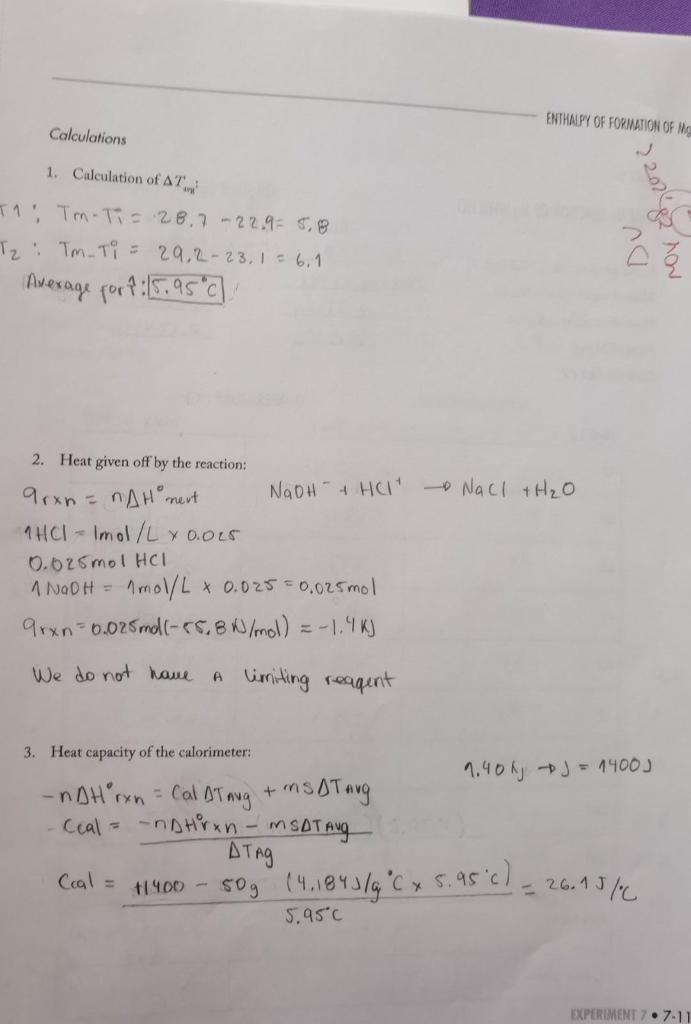 ENTHALPY OF FORMATION OF Mg
Calculations
1. Calculation of ΔTavg:
T1: Tm-Ti = 28.7 - 22.9 = 5.8
T2: Tm-Ti = 29.2 - 23.1 = 6.1
Average for T: 5.95°C
2. Heat given off by the reaction:
qrxn = nΔH°neut NaOH⁻ + HCl⁺ → NaCl + H2O
1HCl = 1mol/L x 0.025
0.025mol HCl
1 NaOH = 1mol/L x 0.025 = 0.025mol
qrxn = 0.025mol(-55.8 KJ/mol) = -1.4 KJ
We do not have A limiting reagent
3. Heat capacity of the calorimeter:
1.40 kj → J = 1400J
-nΔH°rxn = Cal ΔTAvg + msΔTAvg
- Ccal = -nΔH°rxn - msΔTAvg
ΔTAg
Ccal = +1400 - 50g (4.184J/g°C x 5.95°C) = 26.1 J/°C
5.95°C
EXPERIMENT 7 • 7-11